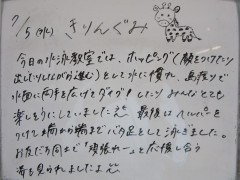 7/5(水) きりんぐみ
今日の水泳教室では、ホッピング(顔をつけたり
出したりしながら進む)をして水に慣れ、鳥渡りで
水面に両手を広げてダイブ!したりみんなとても
楽しそうにしていました
最後はヘルパーを
つけて端から端までバタ足をして泳ぎました。
お友だち同士で「頑張れー」と応援し合う
姿も見られましたよ